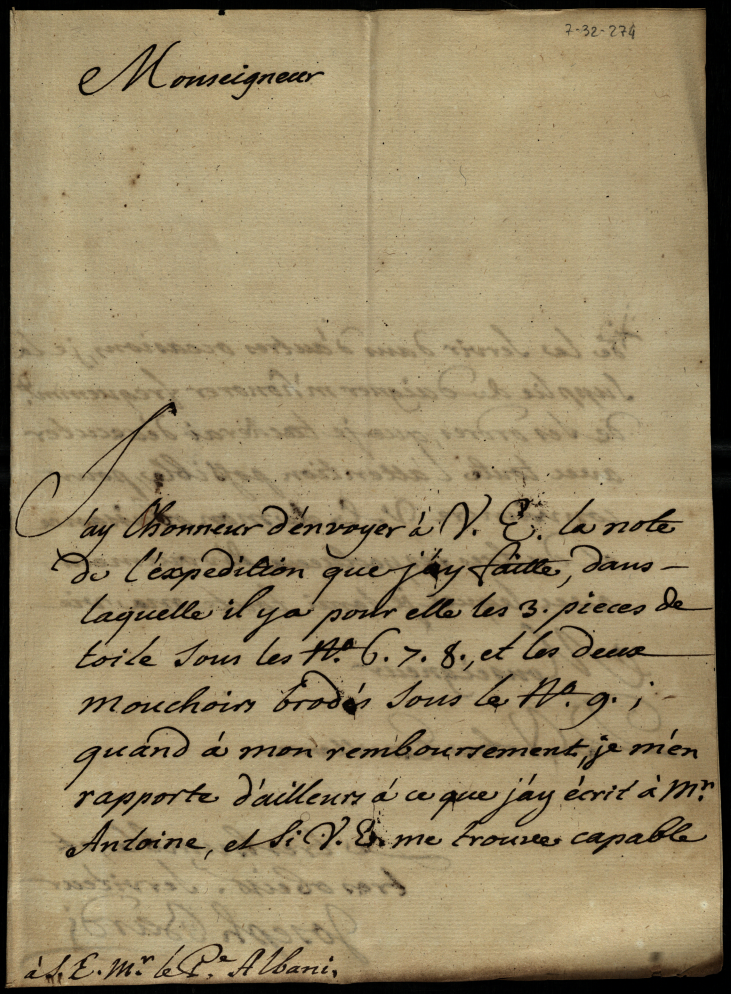 7-32-274
Monseigneur
J'ay l'honneur d'énvoyer à V. E. la note
de l'éxpedition que j'ay faitte, dans
laquelle il y a pour elle les 3. pieces de
toile sous les No. 6. 7. 8., et les deux
mouchoirs brodés sous le No. 9. ;
quand à mon remboursement, je m'en
rapporte d'ailleurs à ce que j'ay écrit à Mr.
Antoine, et si V. E. me trouve capable
à S. E. Mr. le Pe. Albani.